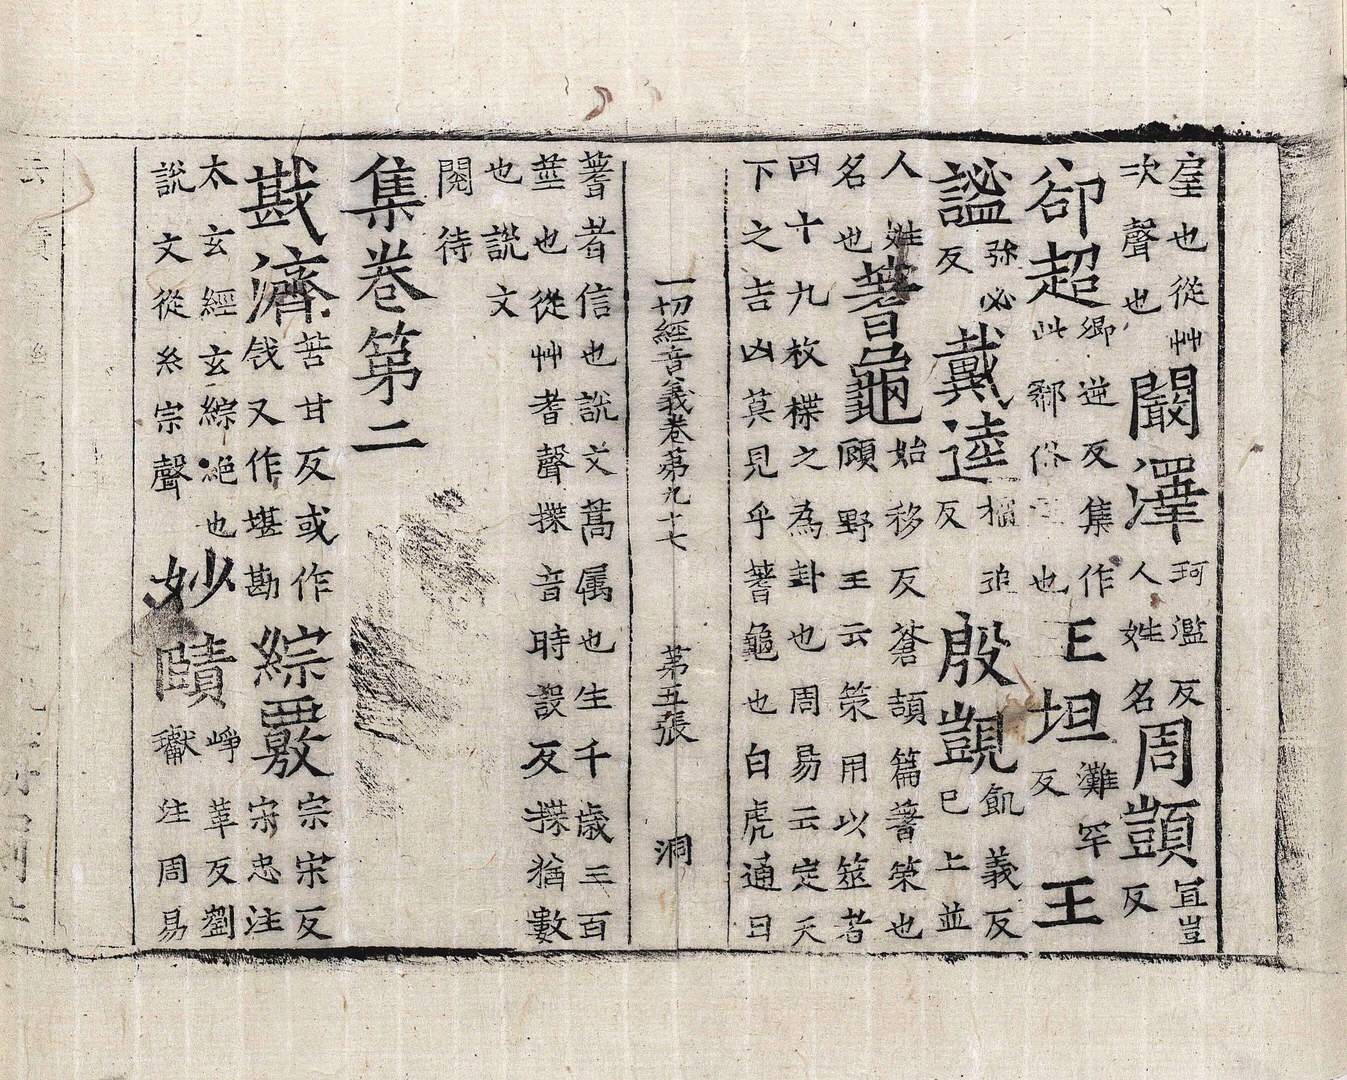 㕓也從艸次聲也闞澤坷濫反人姓名周顗宜豈反
郤超鄉逆反集作此郗俗也王坦灘罕反王
謐弥必反戴逵追反殷覬飢義反巳上並
人姓名也蓍龜始移反蒼頡篇蓍策也顧野王云策用以筮者
四十九枚楪之為卦也周易云定天
下之吉凶莫見乎蓍龜也白虎通曰
一切經音義卷第九十七 第五張 洞
蓍者信也說文蒿属也生千歲三百
莖也從艸耆聲揲音時設反揲猶數
也說文
閱待
集卷第二
戡濟苦甘反或作戗又作堪勘綜覈宗宋反宋忠注
太玄經玄綜絕也說文從糸宗聲妙賾崢革反劉瓛注周易